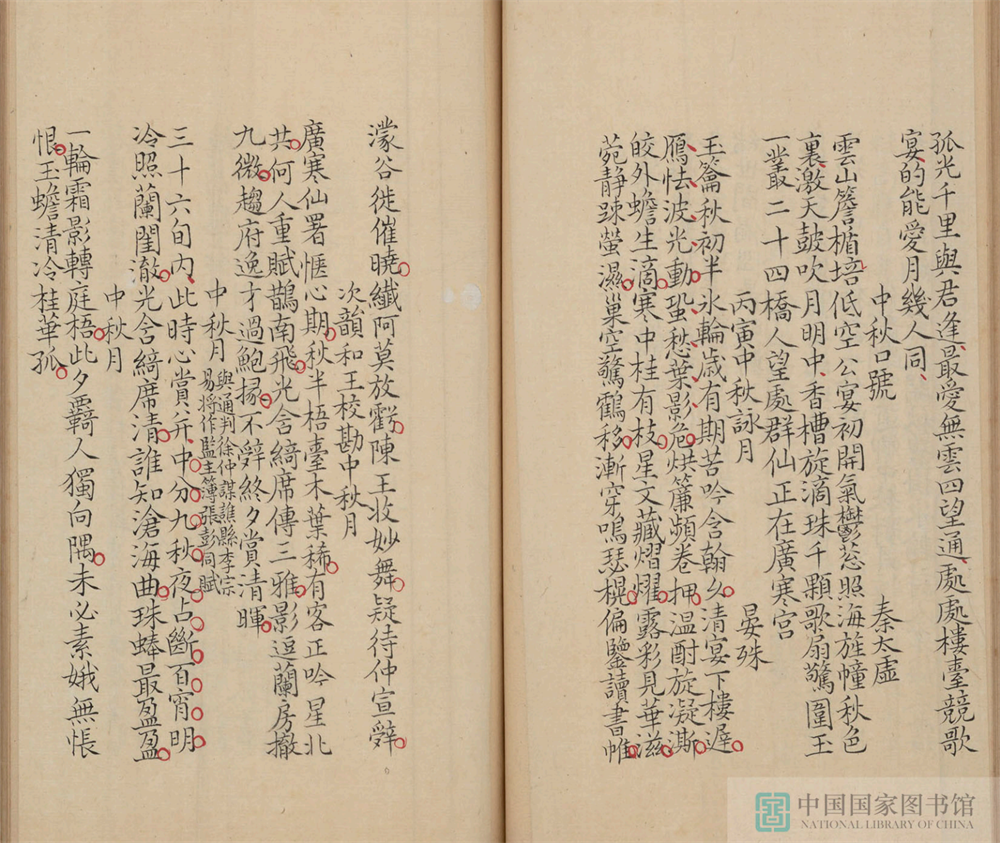 孤光千里與君逢最愛無雲四望通處處樓臺競歌
宴的能愛月幾人同
中秋口號 秦太虛
雲山簷楯培低空公宴初開氣鬱葱照海旌幢秋色
裏激天鼓吹月明中香槽旋滴珠千顆歌扇驚圍玉
一叢二十四橋人望處群仙正在廣寒宮
丙寅中秋詠月 晏殊
玉籥秋初半氷輪歲有期苦吟含翰久清宴下樓遲
鴈怯波光動蛩愁葉影危烘簾頻卷押温酎旋凝澌
皎外蟾生滴寒中桂有枝星文藏熠燿露彩見華滋
菀静踈螢濕巢空驚鶴移漸穿鳴瑟榥偏鑒讀書帷
濛谷徙催曉纖阿莫放虧陳王收妙舞疑待仲宣辤
次韻和王校勘中秋月
廣寒仙署愜心期秋半梧臺木葉稀有客正吟星北
共何人重賦鵲南飛光含綺席傳三雅影逗蘭房撤
九微趨府逸才過鮑掾不辤終夕賞清暉
中秋月 與通判徐仲謀譙縣李宗
易將作監主簿張彭同賦
三十六旬内此時心賞并中分九秋夜占斷百宵明
冷照蘭閨澈光含綺席清誰知滄海曲珠蜯最盈盈
中秋月
一輪霜影轉庭梧此夕覊人獨向隅未必素娥無悵
恨玉蟾清冷桂華孤
中国国家图书馆
NATIONAL LIBRARY OF CHINA